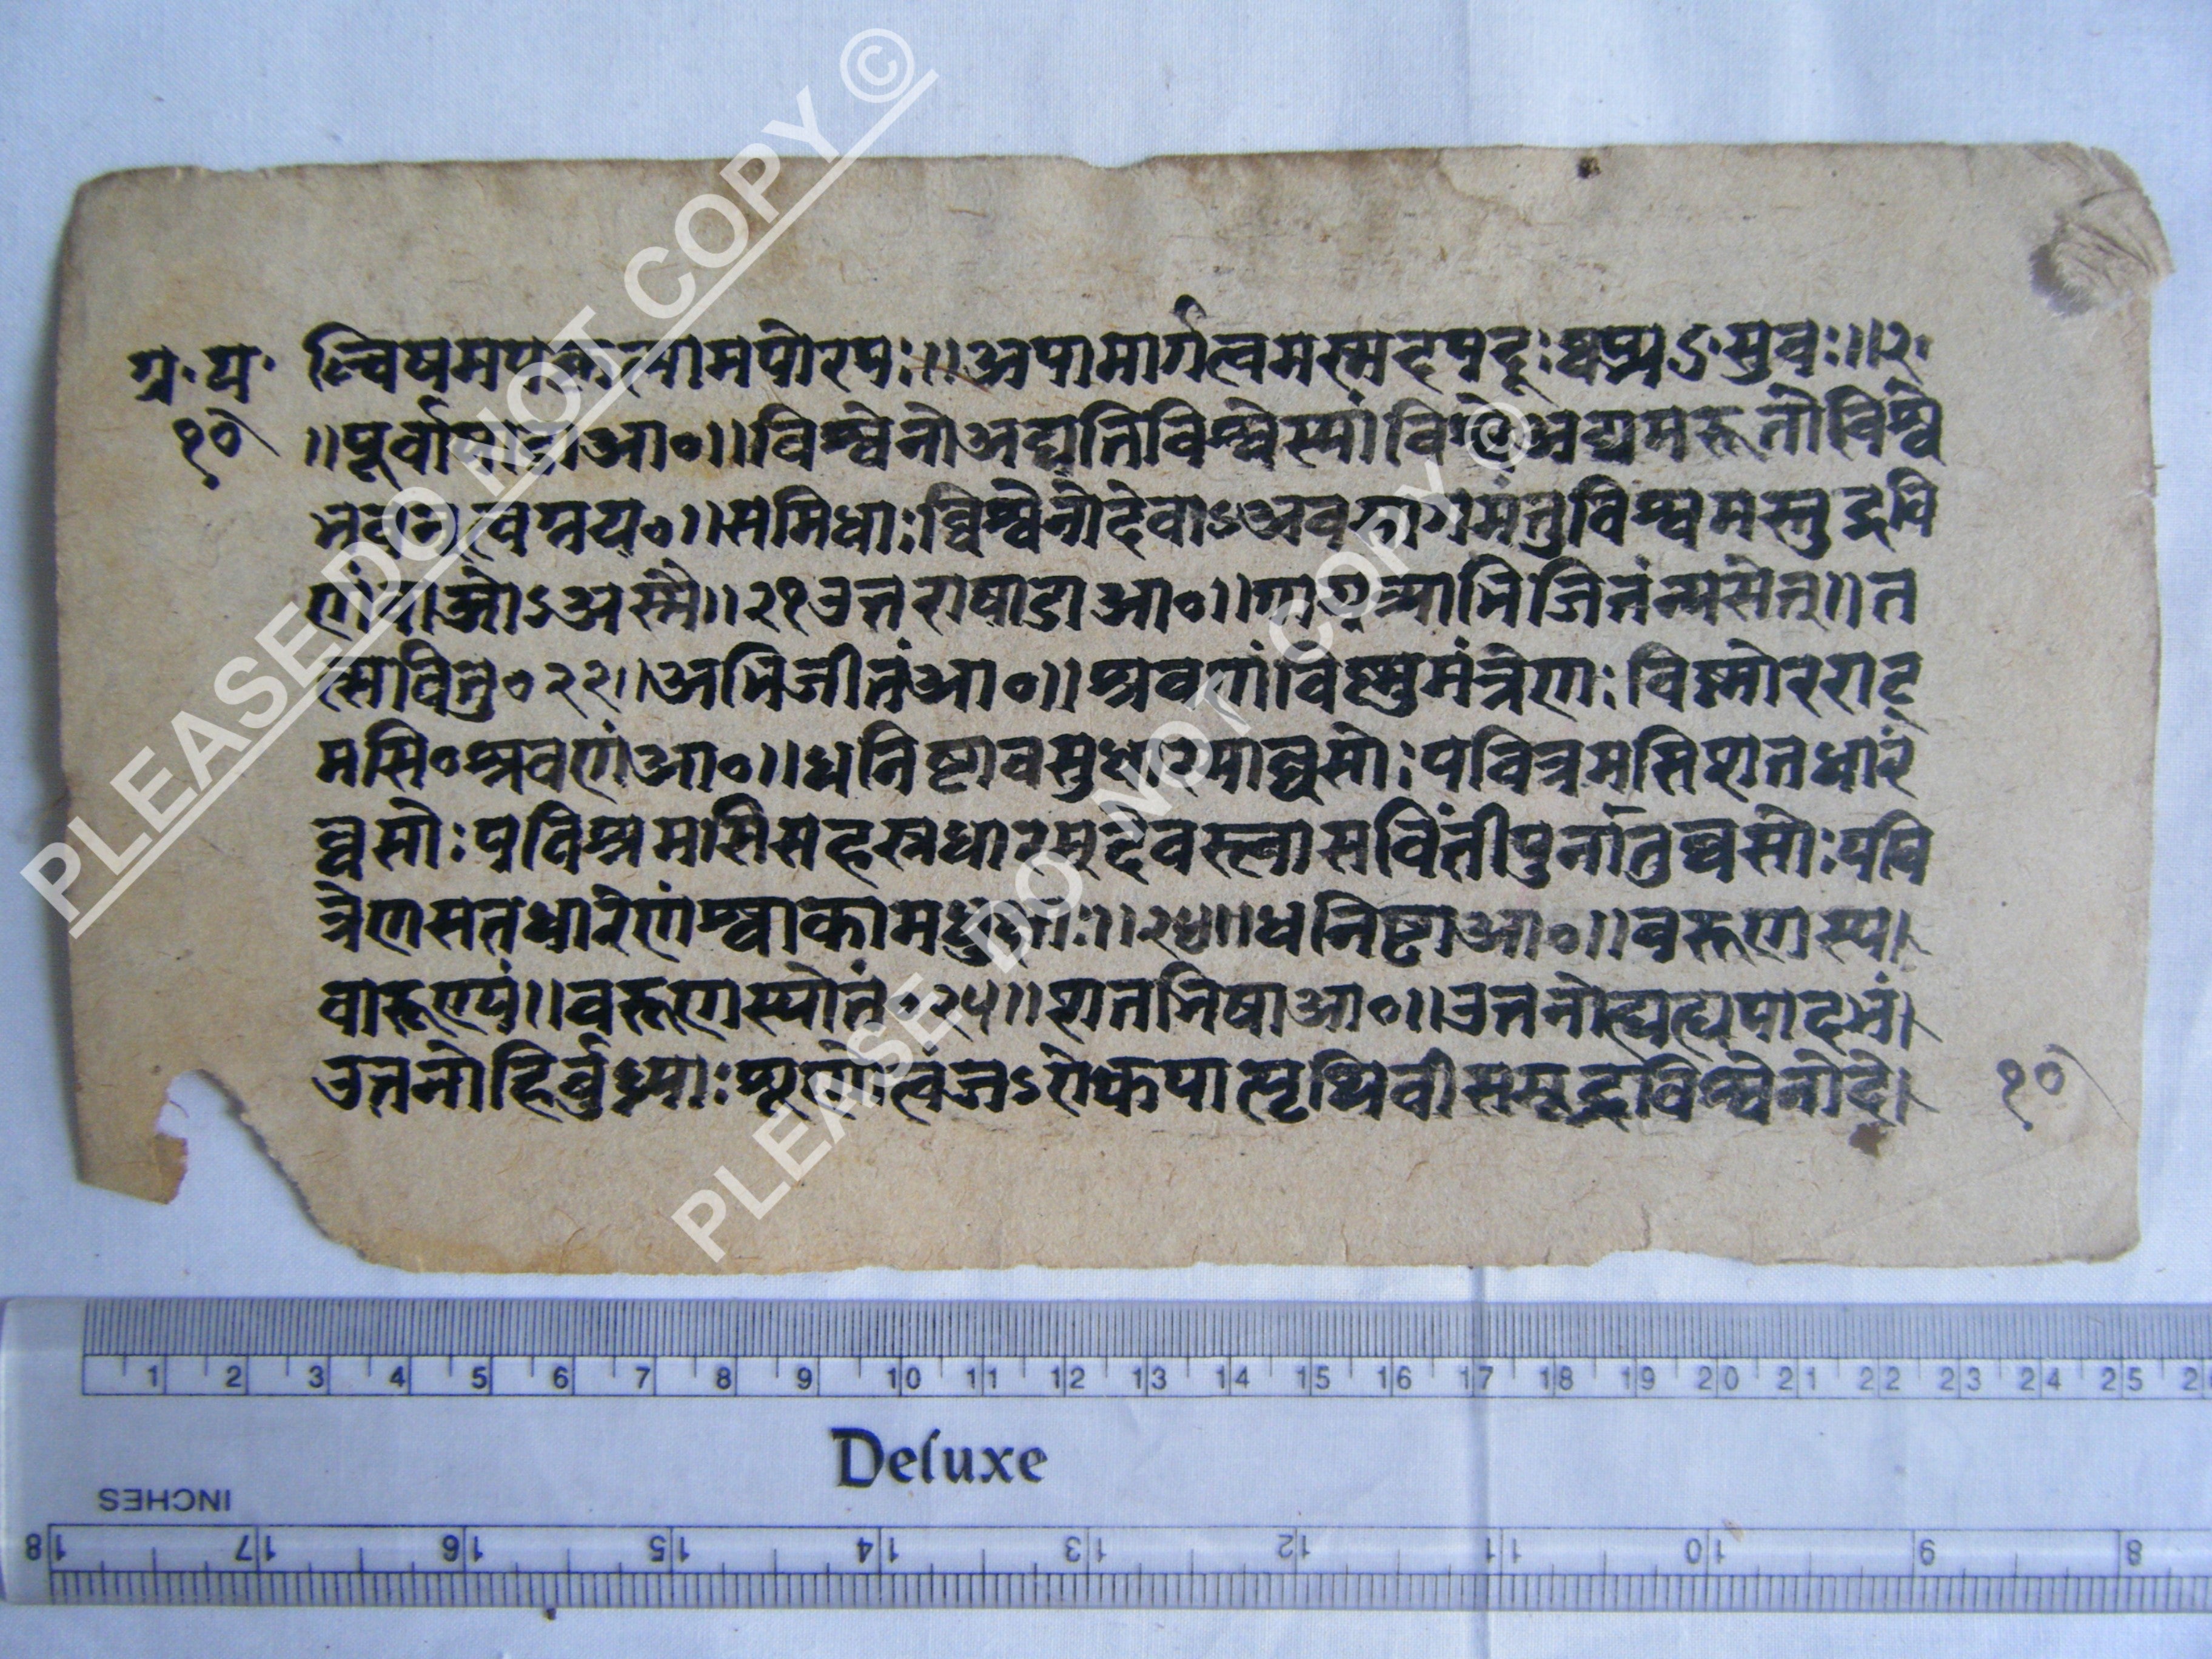 ग्र. प्र.
१०
ल्विषमपकृत्यामपोरपः॥अपामार्गत्वमस्मदपदूःष्वप्न्यऽसुवः॥२
॥पूर्वाषाढाआ०॥विश्वेनोअद्यतिविश्वेस्यांविश्वेअद्यमरुतोविश्वे
भवन्त्वग्नय०॥समिधाःव्विश्वेनोदेवाऽअवसागमंतुविश्वमस्तुद्रवि
णंवाजोऽअस्मै॥२१उत्तराषाढाआ०॥गायत्र्याभिजितंन्यसेत्॥त
त्सवितु०२२॥अभिजीतंआ०॥श्रवणंविष्णुमंत्रेणःविष्णोरराट्
मसि०श्रवणंआ०॥धनिष्टावसुधारयाव्वसोःपवित्रमसिशतधारं
व्वसोःपवित्रमसिसहस्रधारम्देवस्त्वासवितीपुनातुव्वसोःपवि
त्रेणसतधारेणंश्वाकामधुक्षः॥२४॥धनिष्टाआ०॥वरुणस्य
वारूण्यं॥वरुणस्योतं०२५॥शतभिषाआ०॥उतनोह्यह्यपादभं
उतनोहिर्बुध्न्याःशृणोत्वंजऽरोकपात्पृथिवीसमुद्रविश्वेनोदे
१०
PLEASE DO NOT COPY ©
PLEASE DO NOT COPY ©
1 2 3 4 5 6 7 8 9 10 11 12 13 14 15 16 17 18 19 20 21 22 23 24 25
Deluxe
INCHES
18 17 16 15 14 13 12 11 10 9 8